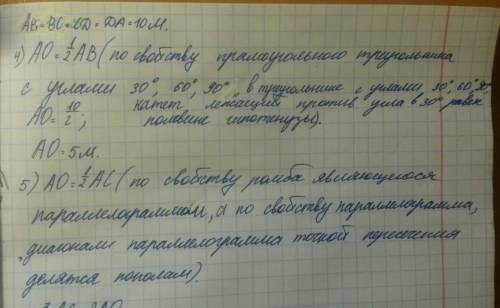 AB=BC=CD=DA=10 м.
4) AO=½AB (по свойству прямоугольного треугольника
с углами 30°, 60°, 90°, в треугольнике с углами, 30°, 60°, 90°,
AO=10/2; катет лежащий против угла в 30° равен
половине гипотенузы).
AO=5м.
5) AO=½AC (по свойству ромба являющегося
параллелограммом, а по свойству параллелограмма,
диагонали параллелограмма точкой пересечения
делятся пополам).